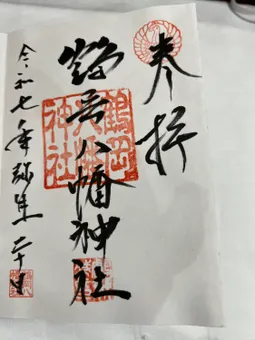 奉拝
鶴岡八幡神社
鶴岡
八幡
神社
令和七年弥生二十日